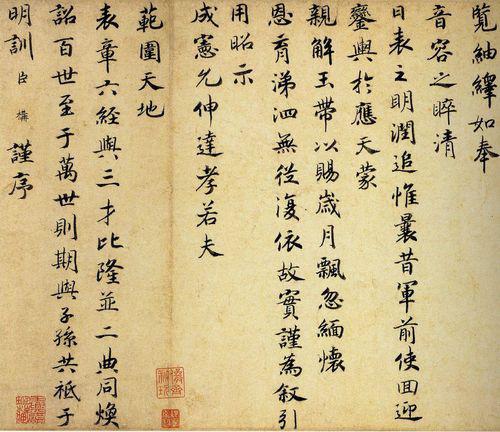 覧紬繹如奉
音容之睟清
日表之明潤追惟曩昔軍前使回迎
鑾輿於應天蒙
親解玉帶以賜歲月飄忽緬懷
恩育涕泗無從復依故實謹為叙引
用昭示
成憲允伸達孝若夫
範圍天地
表章六經與三才比隆並二典同煥
詒百世至于萬世則期與子孫共祗于
明訓臣構謹序